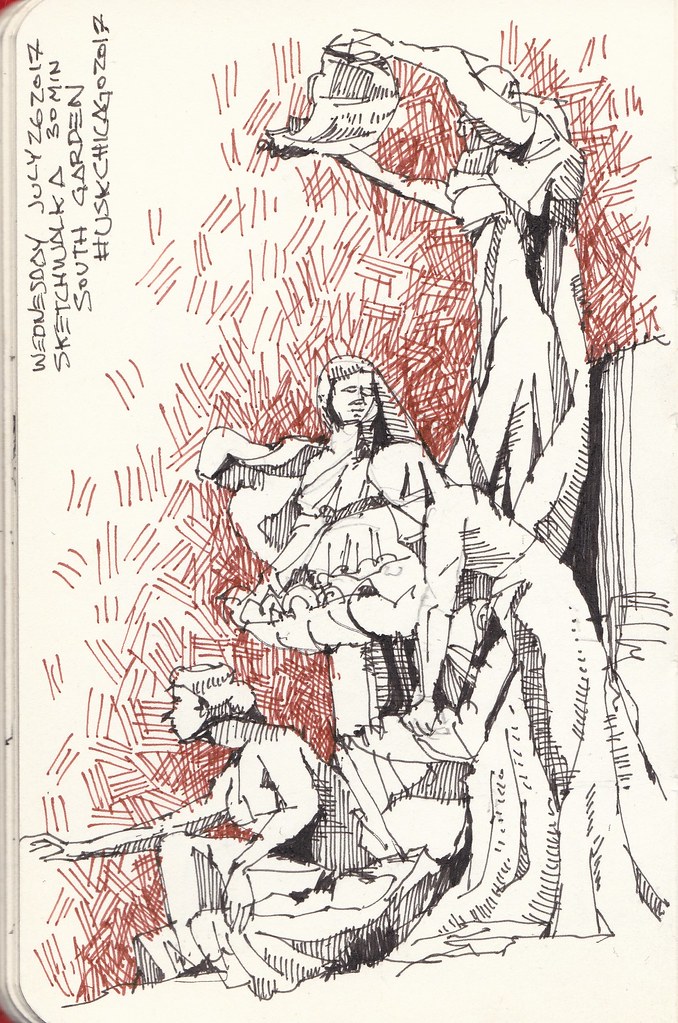 WEDNESDAY JULY 26 2017
SKETCHWALK A 30 MIN
SOUTH GARDEN
#USKCHICAGO2017